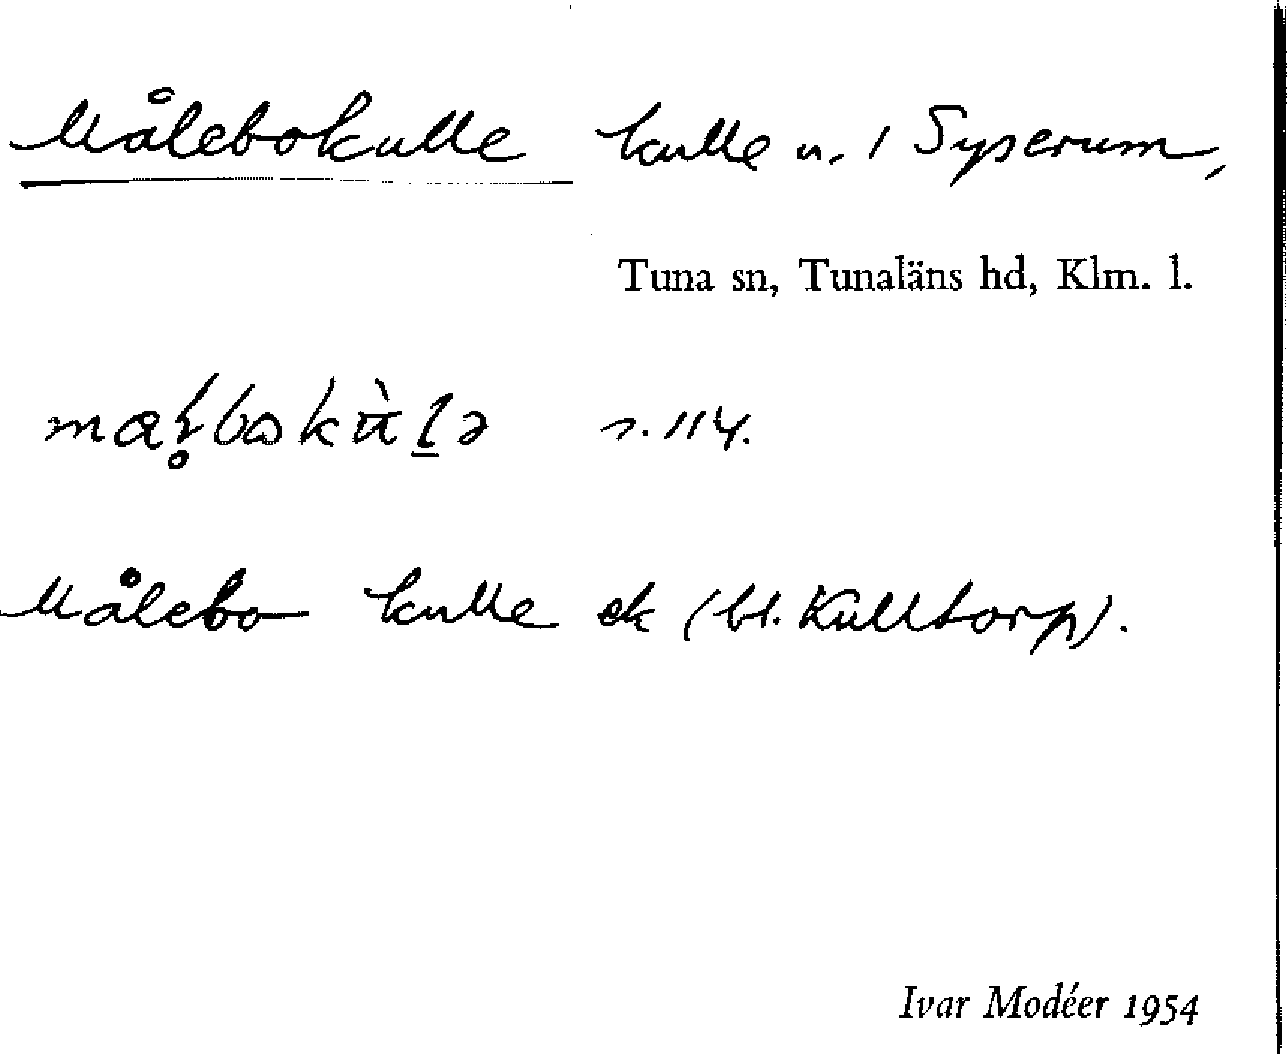 Målebokulle kulle n. / Syserum,
Tuna sn, Tunaläns hd, Klm. l.
s. 114.
Målebo kulle ek (bl. Kulltorp).
Ivar Modéer 1954